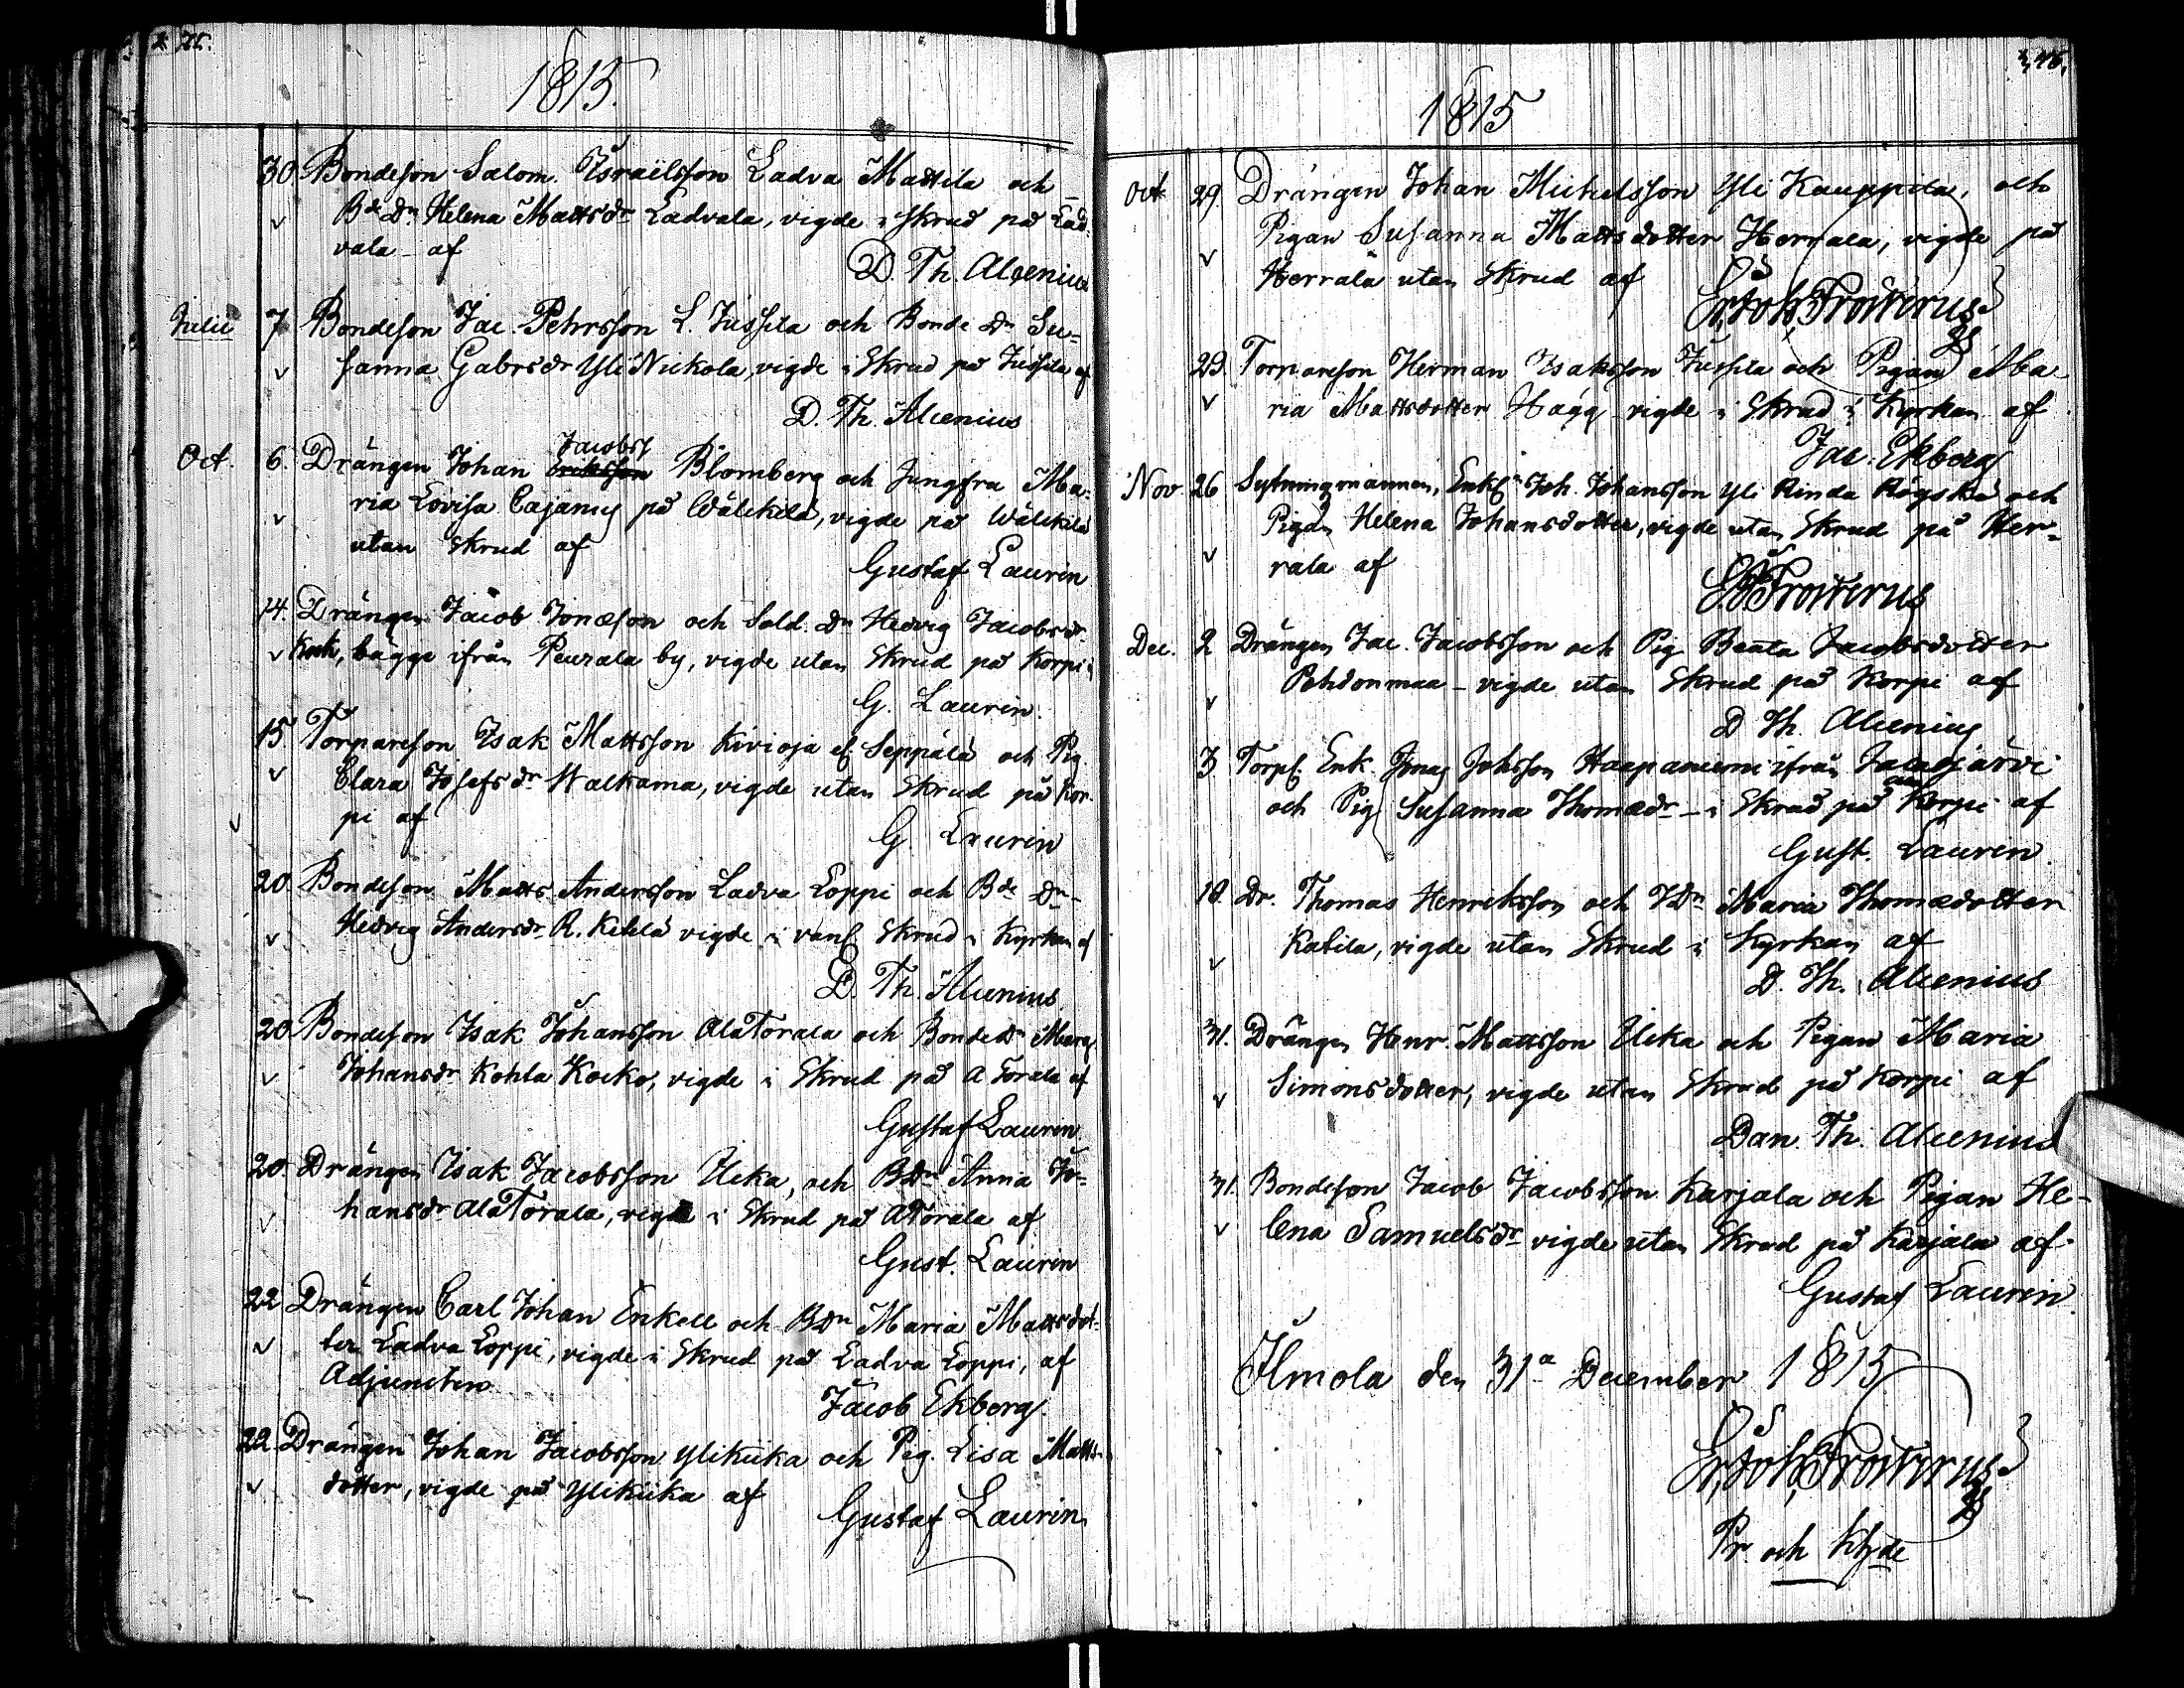 1815.
30. Bondeson Salom. Israëlsson Ladva Mattila och
Bde Dn Helena Mattsdr Ladvala, vigde i Skrud på Lad-
vala af
D. Th. Alcenius
Julii 7 Bondeson Jac. Pehrsson L. Jussila och Bonde Dn Su-
sanna Gabrsdr Yli Nickola, vigde i Skrud på Jussila af
D. Th. Alcenius
Oct. 6. Drängen Johan Jacobss Blomberg och Jungfru Ma-
ria Lovisa Cajanus på Wälikilä, vigde på Wälikilä
utan Skrud af
Gustaf Laurin
14. Drängen Jacob Jonæson och Sold. Dn Hedvig Jacobsdr
Kock, bägge ifrån Peurala by, vigde utan Skrud på Korpi
G. Laurin.
15. Torpareson Isak Mattsson Kivioja el Seppälä och Pig
Clara Josefsdr Walkama, vigde utan Skrud på Kor-
pi af
G. Laurin
20. Bondeson Matts Andersson Ladva Loppi och Bde Dn
Hedvig Andersdr R. Ketelä vigde i vanl Skrud i Kyrkan af
D. Th. Alcenius
20. Bondeson Isak Johansson AlaTorala och Bonde Dn Marg
Johansdr Kohla Kocko, vigde i Skrud på A Torala af
Gustaf Laurin
20. Drängen Isak Jacobsson Ucka, och BDn Anna Jo-
hansdr AlaTorala, vigde i Skrud på ATorala af
Gust. Laurin
22 Drängen Carl Johan Enkell och BDn Maria Mattsdot-
ter Ladva Loppi, vigde i Skrud på Ladva Loppi, af
Adjuncten
Jacob Ekberg.
22. Drängen Johan Jacobsson Ylikiika och Pig. Lisa Matts-
dotter, vigde på Ylikiika af
Gustaf Laurin
1815
Oct 29. Drängen Johan Michelsson Yli Kauppila, och
Pigan Susanna Mattsdotter Herrala, vigde på
Herrala utan Skrud af
29. Torpareson Herman Isaksson Jussila och Pigan Ma-
ria Mattsdotter Hägg vigde i Skrud i Kyrkan af
Jac. Ekberg
Nov. 26 Sytningmannen, Enkl Joh. Johansson Yli Rinda och
Pigan Helena Johansdotter, vigde utan Skrud på Her-
rala af
Dec. 2 Drängen Jac. Jacobsson och Pig Beata Jacobsdotter
vigde utan Skrud på Korpi af
D Th. Alcenius
3 Torps. Enk. Jonas Johsson Haapaniemi ifrån Jalasjärvi
och Pig Susanna Thomædr i Skrud på Korpi af
Gust. Laurin.
10. Dr. Thomas Henriksson och Maria Thomædotter
Katila, vigde utan Skrud i Kyrkan af
D. Th. Alcenius
31. Drängen Henr. Mattsson Ucka och Pigan Maria
Simonsdotter, vigde utan Skrud på Korpi af
Dan. Th. Alcenius
31. Bondeson Jacob Jacobsson Karjala och Pigan He-
lena Samuelsdr vigde utan Skrud på Karjala af
Gustaf Laurin
Ilmola den 31a December 1815
Pr. och Khde